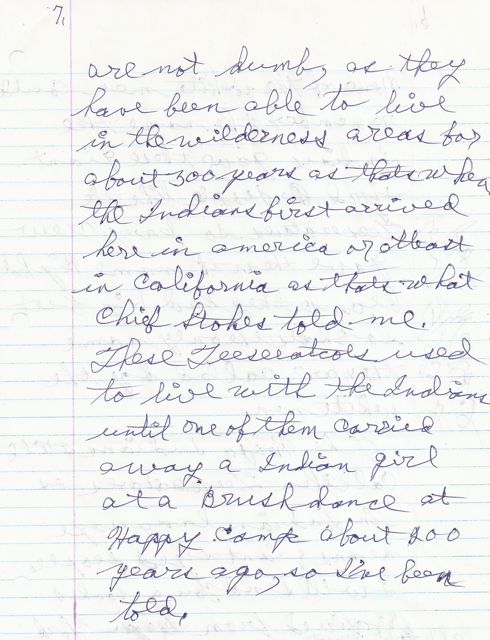 7,
are not dumb, as they
have been able to live
in the wilderness areas for
about 300 years as thats when
the Indians first arrived
here in america or atleast
in California as thats what
Chief Stokes told me.
These used
to live with the Indians
until one of them carried
away a Indian girl
at a Brush dance at
Happy Camp about 200
years ago, so I've been
told.